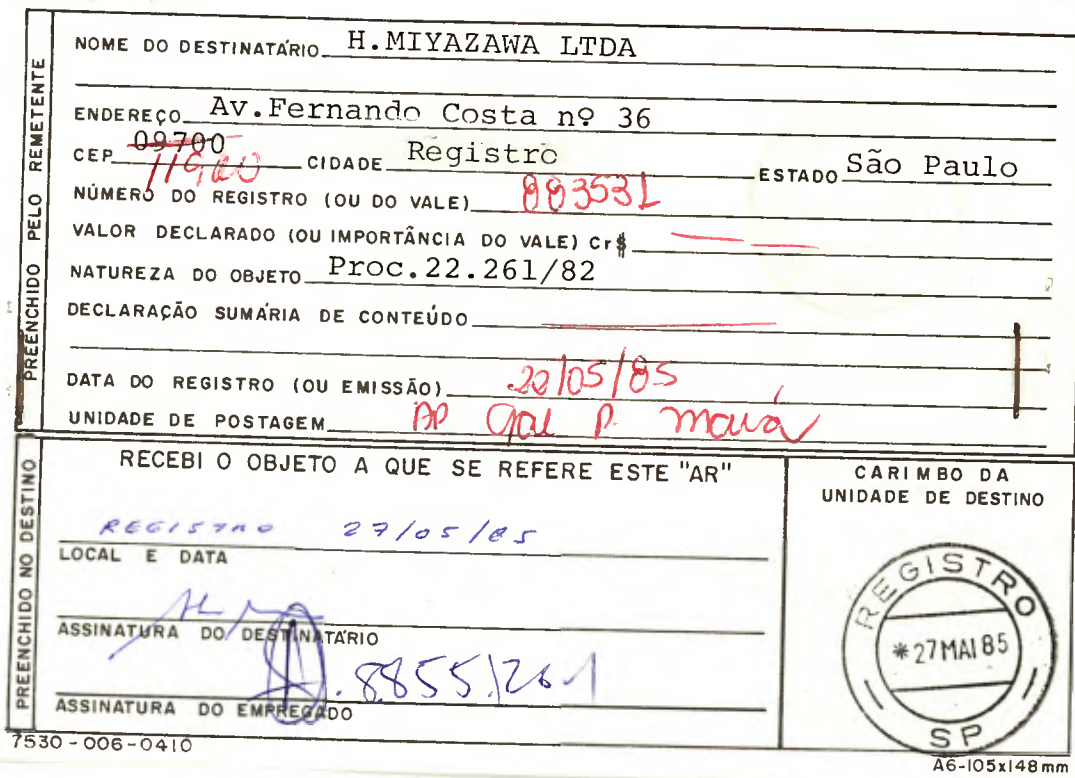 PREENCHIDO PELO REMETENTE
NOME DO DESTINATÁRIO H.MIYAZAWA LTDA
ENDEREÇO Av.Fernando Costa nº 36
CEP 09700 CIDADE Registro ESTADO São Paulo
NÚMERO DO REGISTRO (OU DO VALE) 883531
VALOR DECLARADO (OU IMPORTÂNCIA DO VALE) Cr$
NATUREZA DO OBJETO Proc.22.261/82
DECLARAÇÃO SUMÁRIA DE CONTEÚDO
DATA DO REGISTRO (OU EMISSÃO) 22/05/85
UNIDADE DE POSTAGEM AP Gal P. Mauá
PREENCHIDO NO DESTINO
RECEBI O OBJETO A QUE SE REFERE ESTE "AR"
REGISTRO 27/05/85
LOCAL E DATA
ASSINATURA DO DESTINATÁRIO
8855261
ASSINATURA DO EMPREGADO
CARIMBO DA
UNIDADE DE DESTINO
REGISTRO
*27 MAI 85
SP
7530-006-0410
A6-105x148mm